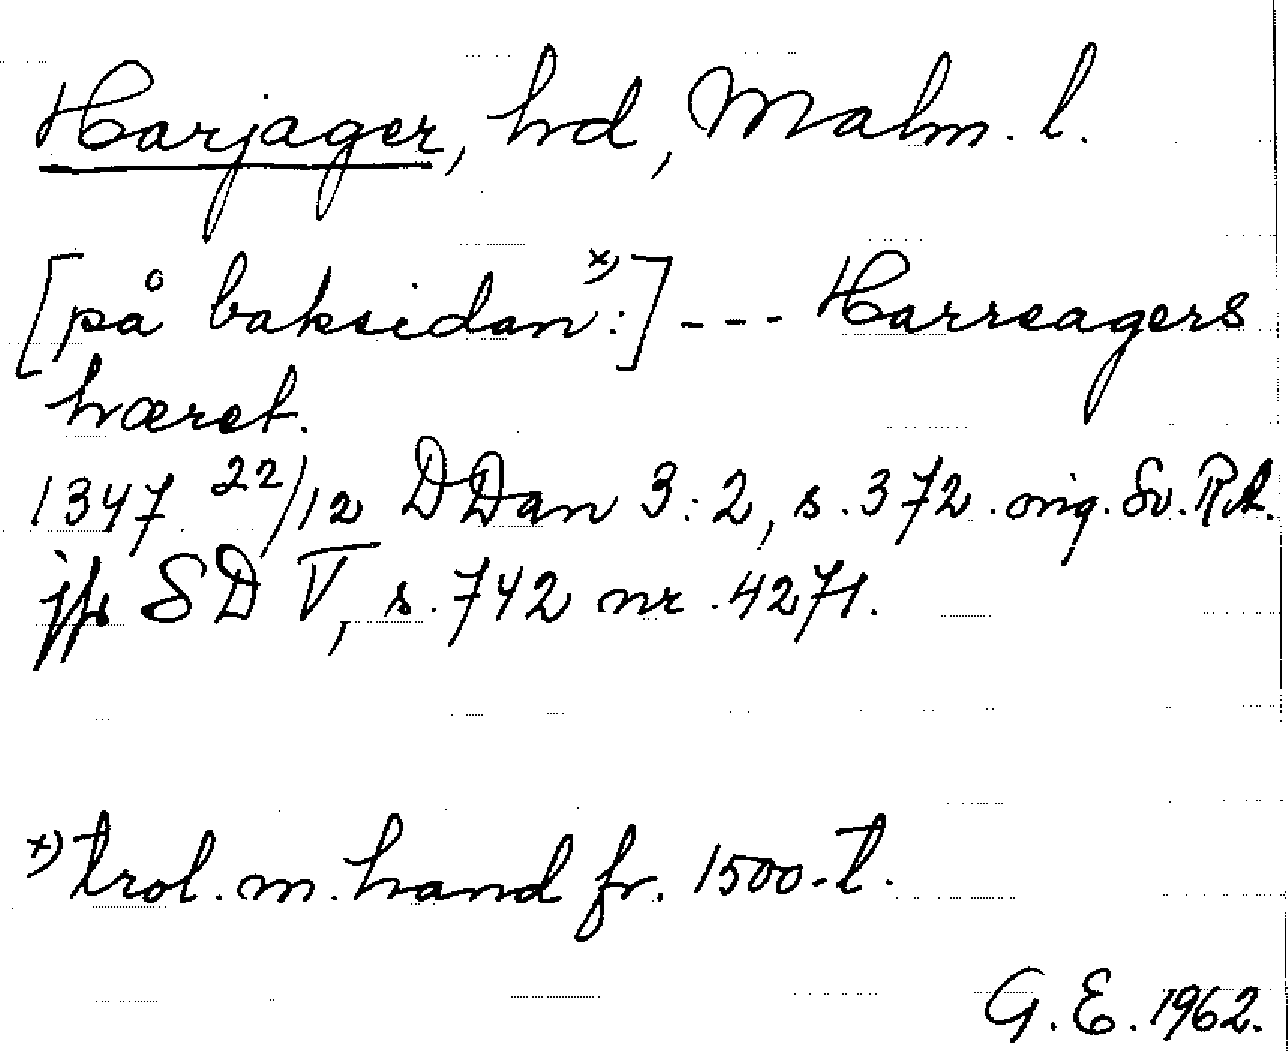 Harjager, hd, Malm. l.
[på baksidan x):] --- Harreagers
hæret.
1347 22/12 DDan 3:2, s. 372. orig. Sv. RA.
jfr SD V, s. 742 nr. 4271.
x) trol. m. hand fr. 1500-t.
G. E. 1962.